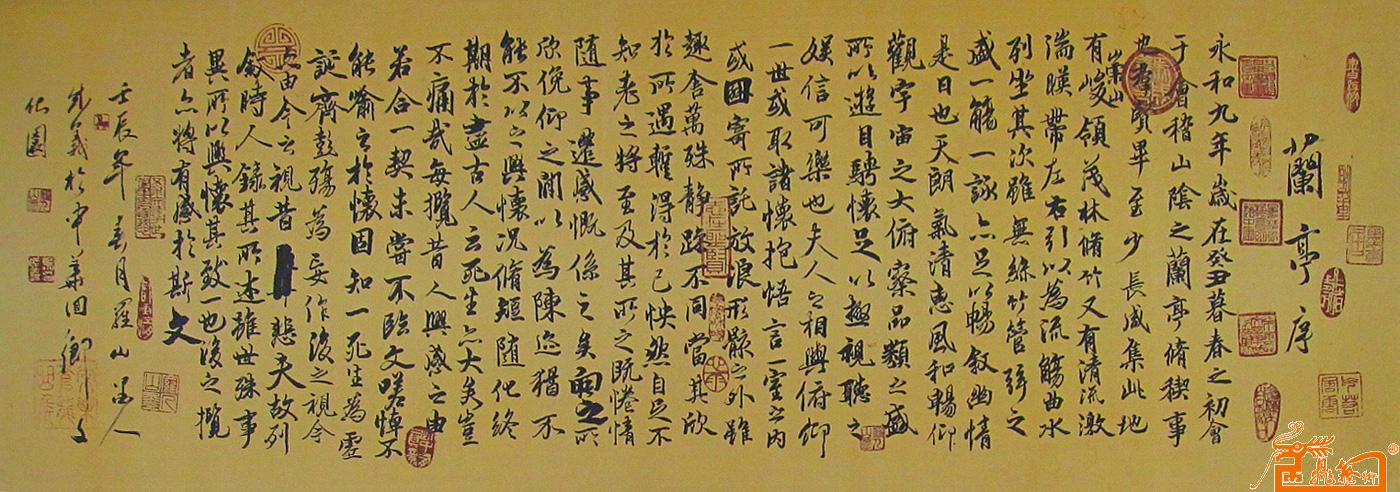 蘭亭序
永和九年歲在癸丑暮春之初會
于會稽山陰之蘭亭脩稧事
也羣賢畢至少長咸集此地
有崇山峻領茂林脩竹又有清流激
湍暎帶左右引以為流觴曲水
列坐其次雖無絲竹管弦之
盛一觴一詠亦足以暢敘幽情
是日也天朗氣清惠風和暢仰
觀宇宙之大俯察品類之盛
所以遊目騁懷足以極視聽之
娛信可樂也夫人之相與俯仰
一世或取諸懷抱悟言一室之內
或因寄所託放浪形骸之外雖
趣舍萬殊靜躁不同當其欣
於所遇暫得於己怏然自足不
知老之將至及其所之既惓情
隨事遷感慨係之矣向之所
欣俛仰之閒以為陳迹猶不
能不以之興懷況脩短隨化終
期於盡古人云死生亦大矣豈
不痛哉每攬昔人興感之由
若合一契未嘗不臨文嗟悼不
能喻之於懷固知一死生為虛
誕齊彭殤為妄作後之視今
亦由今之視昔悲夫故列
敘時人錄其所述雖世殊事
異所以興懷其致一也後之攬
者亦將有感於斯文
壬辰年春月羅山人
先義於中華
園